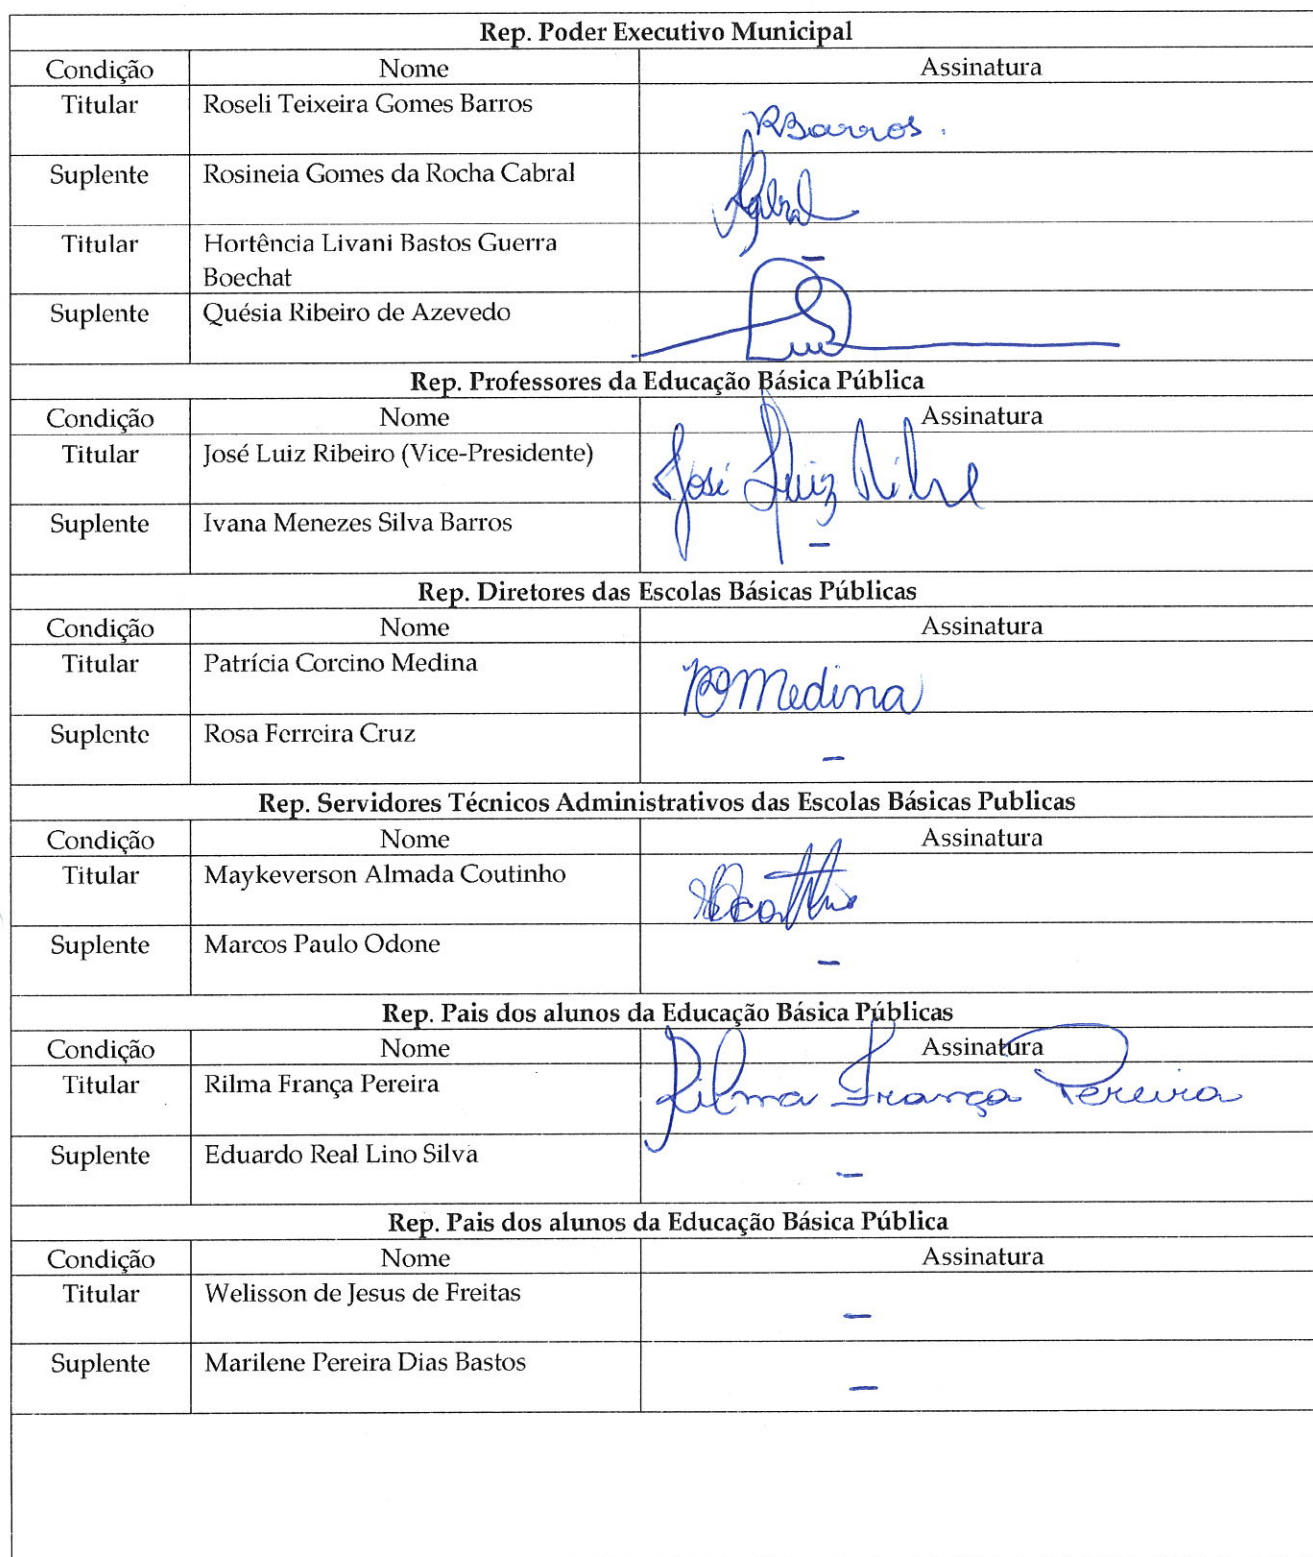 Rep. Poder Executivo Municipal
Condição Nome Assinatura
Titular Roseli Teixeira Gomes Barros RBarros.
Suplente Rosineia Gomes da Rocha Cabral Cabral
Titular Hortência Livani Bastos Guerra
Boechat –
Suplente Quésia Ribeiro de Azevedo
Rep. Professores da Educação Básica Pública
Condição Nome Assinatura
Titular José Luiz Ribeiro (Vice-Presidente) José Luiz
Suplente Ivana Menezes Silva Barros –
Rep. Diretores das Escolas Básicas Públicas
Condição Nome Assinatura
Titular Patrícia Corcino Medina Medina
Suplente Rosa Ferreira Cruz –
Rep. Servidores Técnicos Administrativos das Escolas Básicas Publicas
Condição Nome Assinatura
Titular Maykeverson Almada Coutinho
Suplente Marcos Paulo Odone –
Rep. Pais dos alunos da Educação Básica Públicas
Condição Nome Assinatura
Titular Rilma França Pereira Rilma França Pereira
Suplente Eduardo Real Lino Silva –
Rep. Pais dos alunos da Educação Básica Pública
Condição Nome Assinatura
Titular Welisson de Jesus de Freitas –
Suplente Marilene Pereira Dias Bastos –